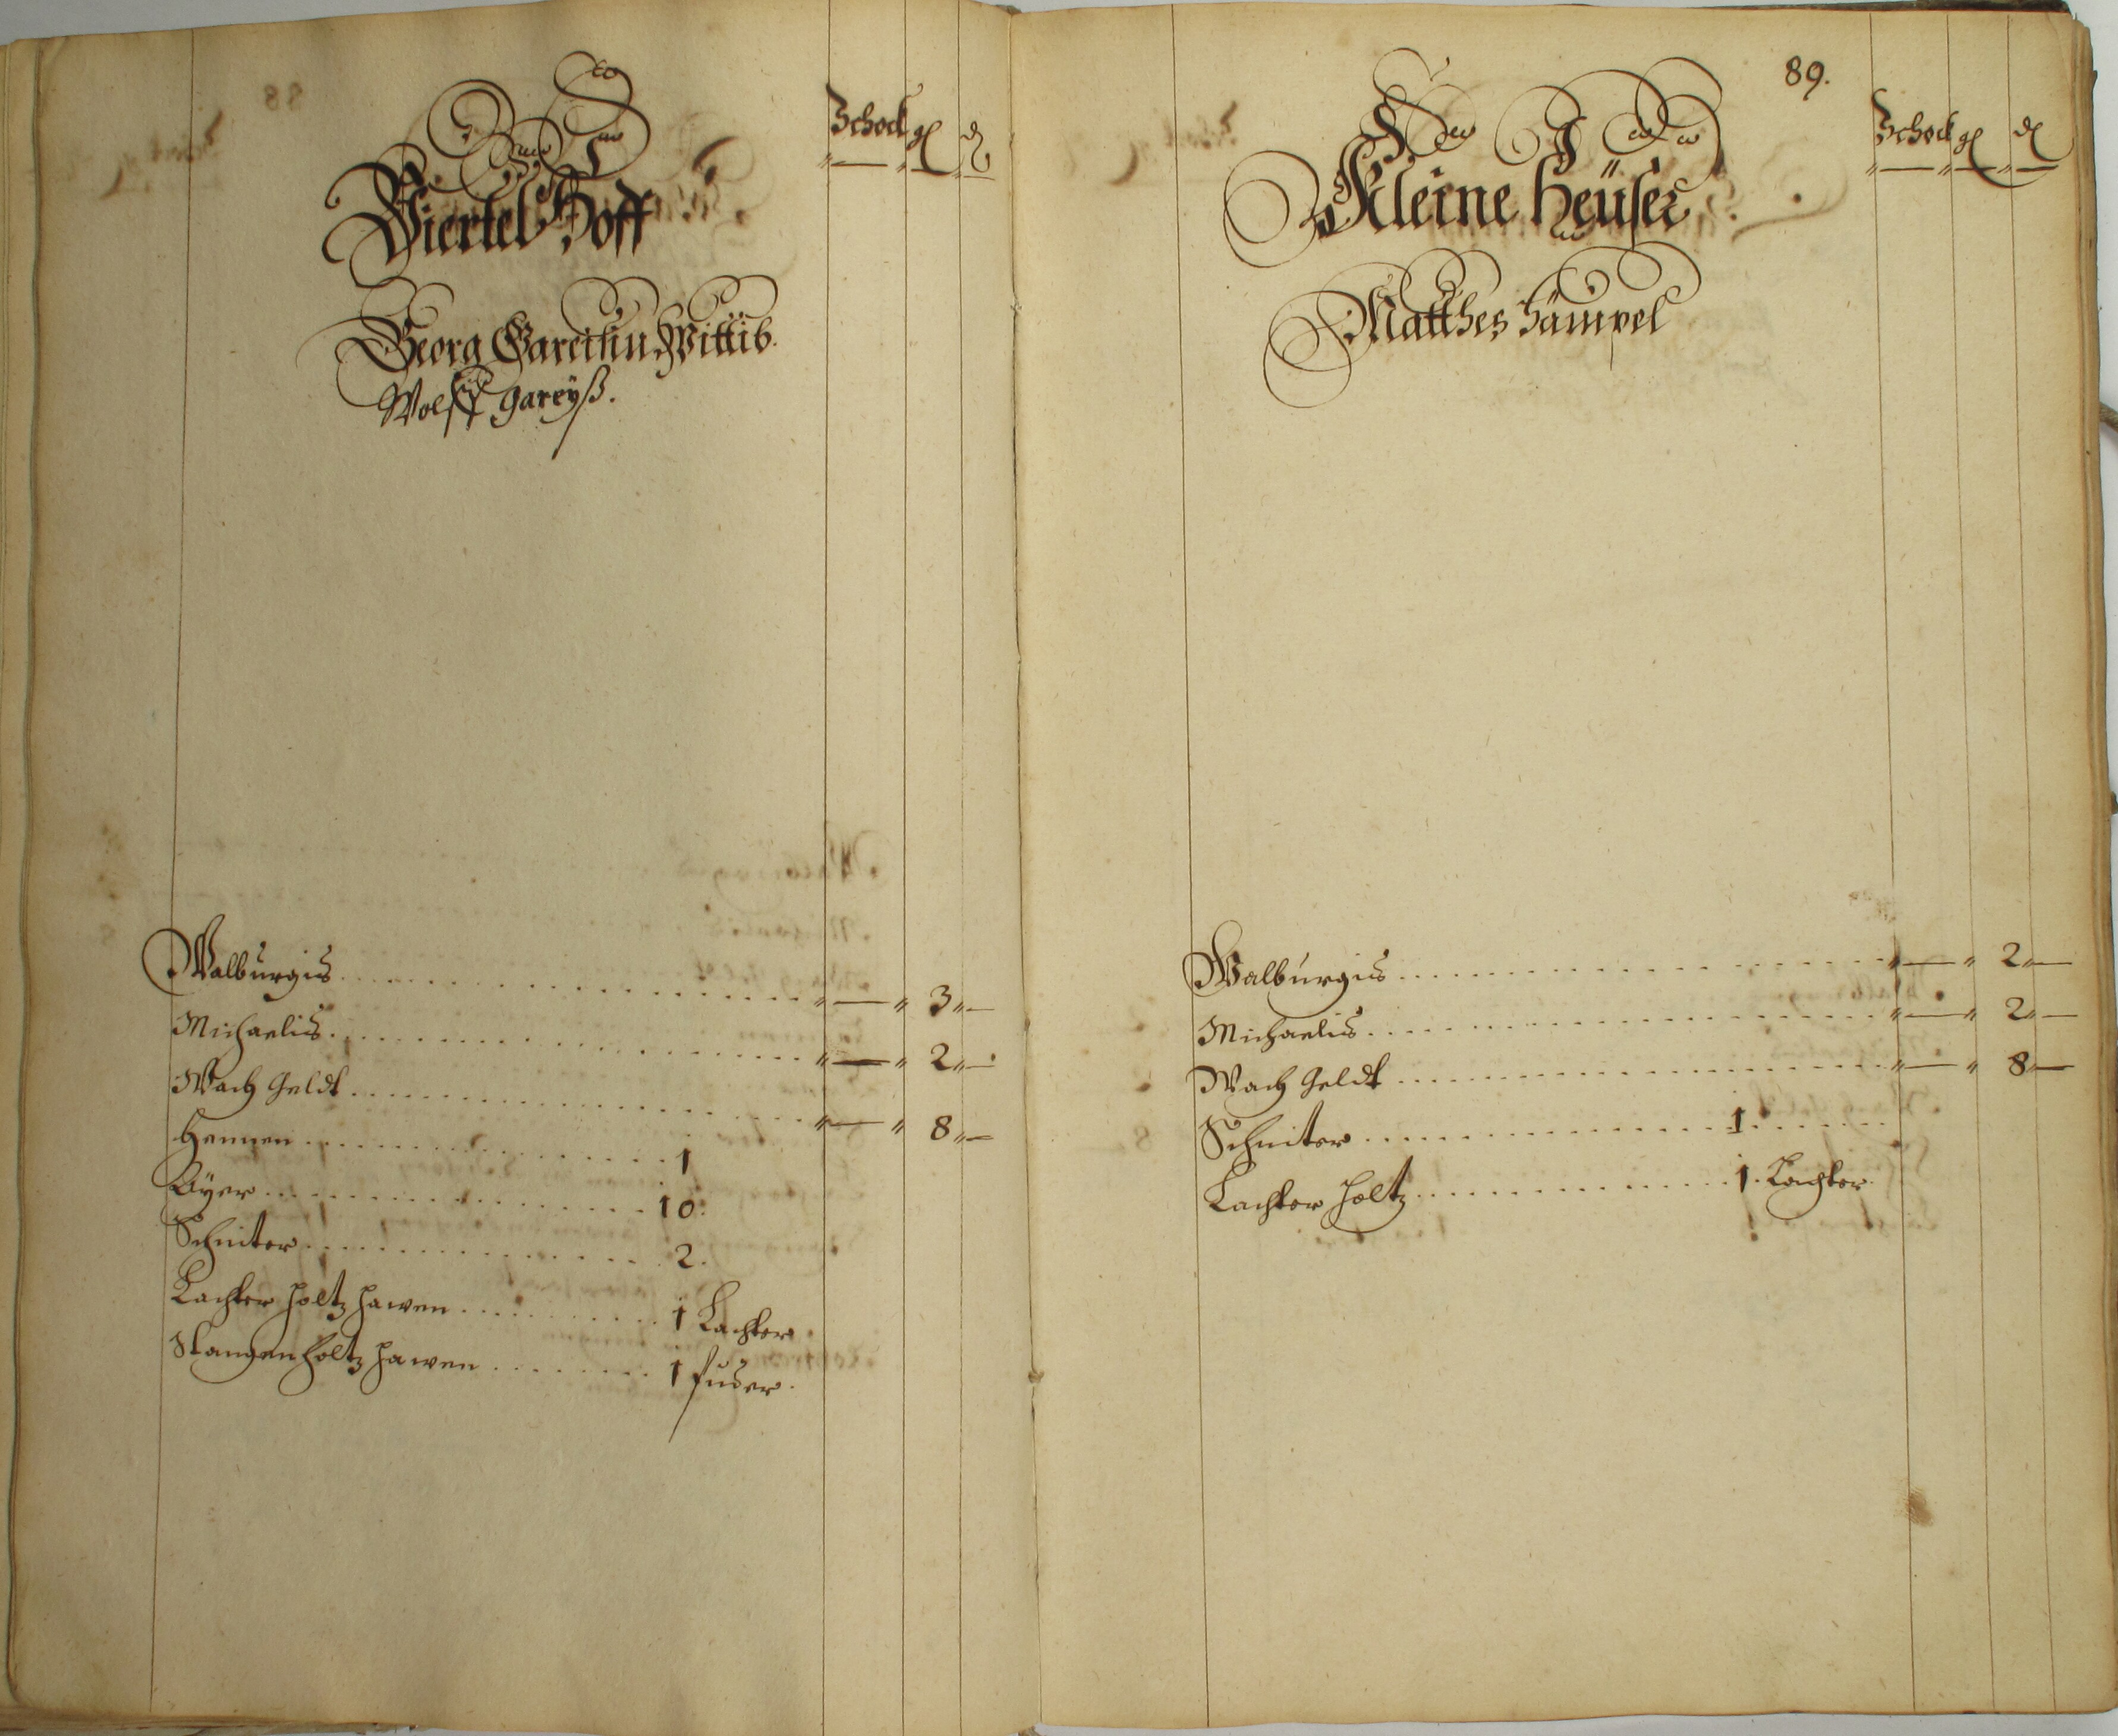 Schock gl d
Viertel Hoff
Georg Gareisin Wittib.
Wolff Gareÿß.
Walburgis - 3 -
Michaelis - 2 -
Wach Geldt - 8 -
Hennen 1
Ayer 10.
Schniter 2.
Lachter holtz hawen 1 Lachter
Stangen holtz hawen 1 fuder.
89.
Schock gl d
Kleine Heüser
Matthes Hämpel
Walburgis - 2 -
Michaelis - 2 -
Wach Geldt - 8 -
Schniter 1.
Lachter holtz 1. Lachter